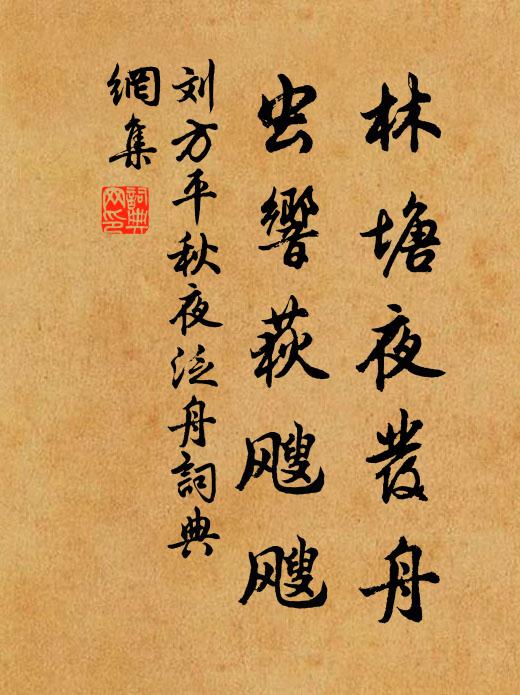 林塘夜發舟
虫響荻飕飕
刘方平秋夜泛舟詞典
網集
詞典
网印